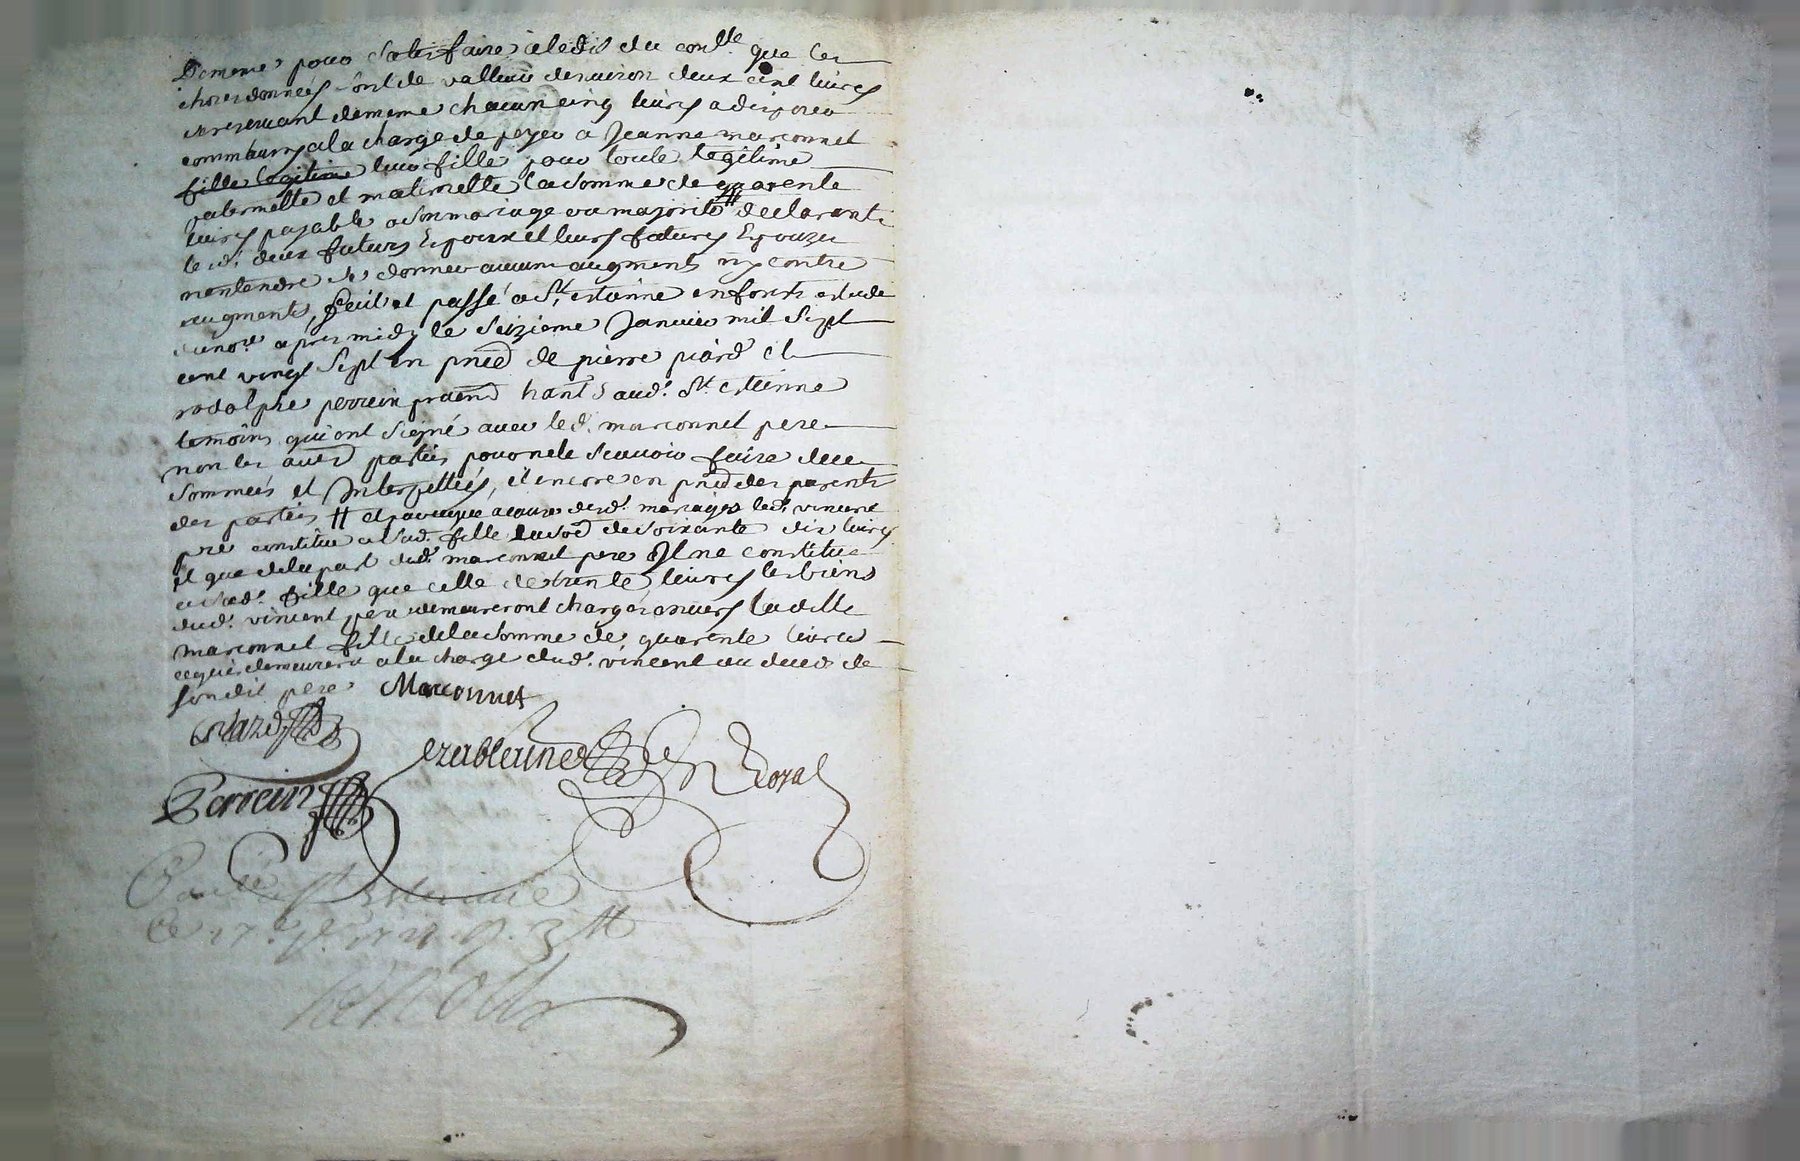 De meme pour satisfaire a ledit du conlle que les
choses données sont de valleur denviron deux cent livres
se reservant de meme chacun cinq livres a disposer
comme a la charge de payer a Jeanne marconnet
fille legitime leur fille pour toute legitime
paternelle et maternelle la somme de quarente
livres payable a son mariage ou majorité # declarants
lesd. deux futurs Epoux et leurs futures Epouzes
nentendre se donner aucun augment ny contre
augment, fait et passé a St. estienne en foretz estude
du no.re apres midy le seizieme Janvier mil sept
cent vingt sept en pnce de pierre piard et
rodolphe perrein hant. aud. St. estienne
temoins qui ont signé avec led. marconnet pere
non les autres parties pour ne le scavoir faire de ce
sommés et Interpellés, et encore en pnce des parents
des parties # et parce que a cause desd. mariages led. vincent
pere constitue a sad. fille la so.e de soixante dix livres
et que de la part dud. marconnet pere Il ne constitue
a sad. fille que celle de trente livres les biens
dud. vincent pere demeureront chargés envers lad.
marconnet fille de la somme de quarente livres
ce qui demeurera a la charge dud. vincent au deces de
sondit pere Marconnet
Piard
Perrein
St Estienne
Le 17e